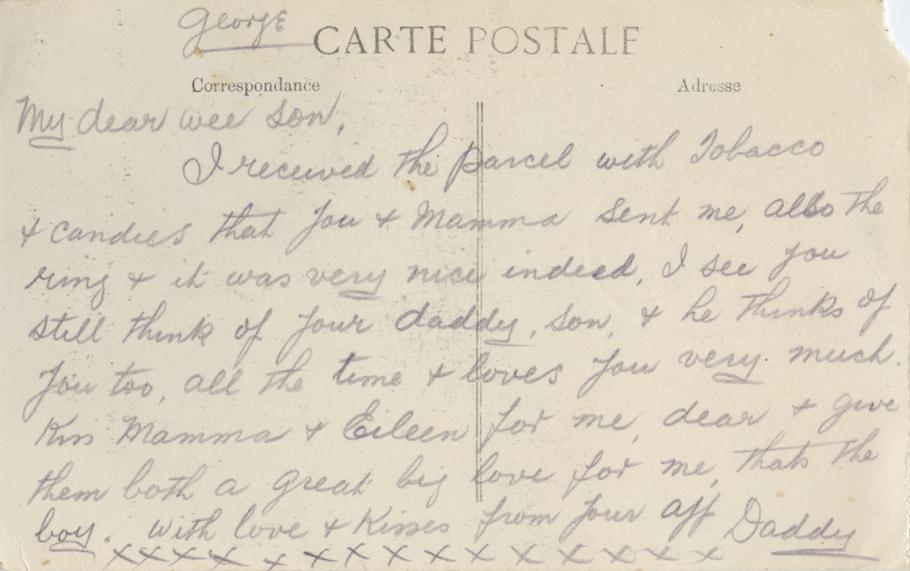 George
CARTE POSTALE
Correspondance
Adresse
My dear wee son,
I received the parcel with Tobacco
& candies that you & Mamma sent me, also the
ring & it was very nice indeed, I see you
still think of your daddy, son, & he thinks of
you too, all the time & loves you very much.
Kiss Mamma & Eileen for me, dear & give
them both a great big love for me, thats the
boy. with love & Kisses from your aff Daddy
xxxxxxxxxxxxxxxxx